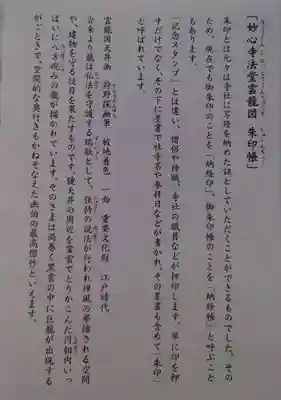 「妙心寺法堂雲龍図 朱印帳」
朱印とは元々は寺社に写経を納めた証としていただくことができるものでした。その
ため、現在でも御朱印のことを「納経印」、御朱印帳のことを「納経帳」と呼ぶこと
「記念スタンプ」とは違い、僧侶や神職、寺社の職員などが押印します。単に印を押
すだけでなく、その下に墨書で社寺名や参拝日などが書かれ、その墨書も含めて「朱印」
と呼ばれています。
雲龍図天井画 狩野探幽筆 板地着色 一面 重要文化財 江戸時代
古来より龍は仏法を守護する瑞獣として、住持の説法が行われ禅風の挙揚される空間
や、建物を守る役目を果たすものです。鏡天井の周辺を雲霊でとりかこんだ円相内いっ
ぱいに八方睨みの龍が描かれています。そのさまは渦巻く黒雲の中に巨龍が出現する
がごときで、空間的な奥行きもかねそなえた画伯の最高傑作といえます。